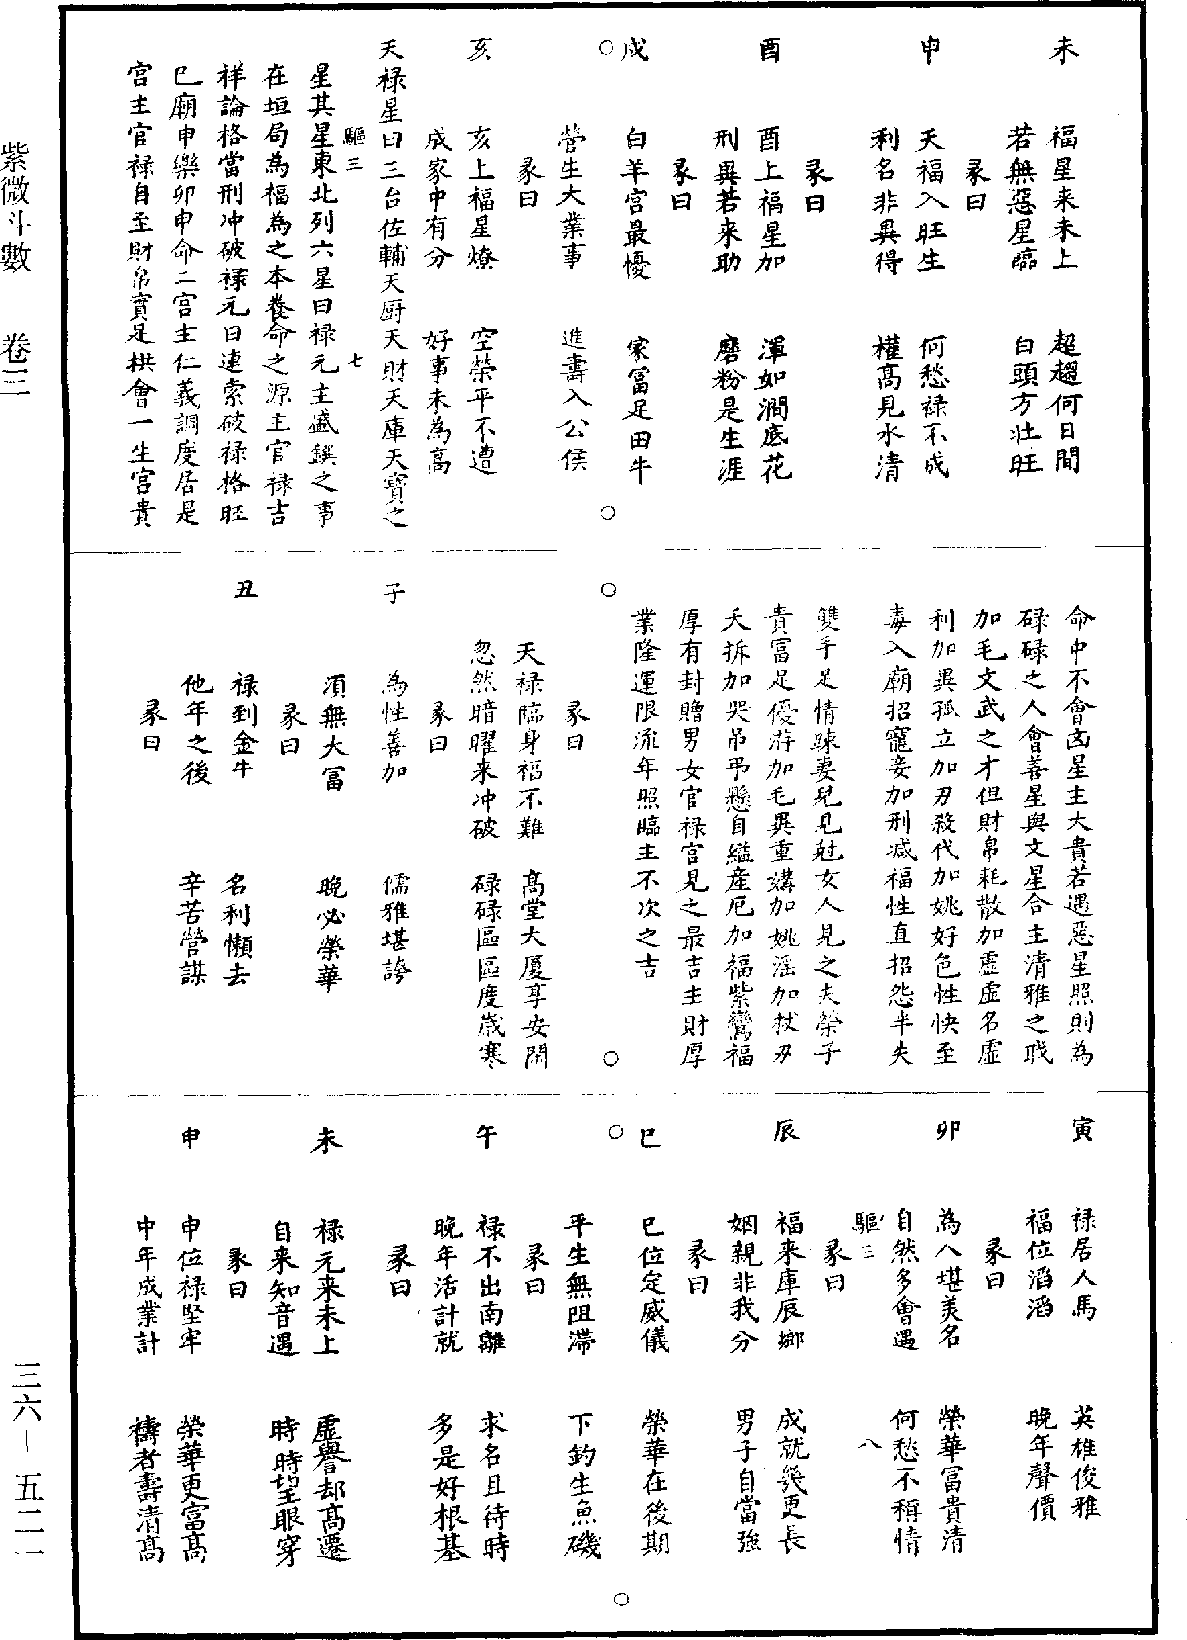 未
福星来未上　超趨何日間
若無惡星臨　白頭方壮旺
彖曰
申
天福入旺生　何愁禄不成
利名非異得　權髙見水清
彖曰
酉
酉上福星加　渾如澗底花
刑異若来助　磨粉是生涯
彖曰
戍
白羊宫最懮　家冨足田牛
營生大業事　進壽入公侯
彖曰
亥
亥上福星燎　空榮平不遭
成家中有分　好事未為髙
天禄星曰三台佐輔天厨天財天庫天寳之
驅三　七
星其星東北列六星曰禄元主盛饌之事
在垣局為福為之本養命之源主官禄吉
祥論格當刑冲破禄元曰連索破禄格旺
巳廟申樂卯申命二宫主仁義調度居是
宫主官禄自至財帛實是拱會一生宫貴
命中不會凶星主大貴若遇惡星照則為
碌碌之人會善星與文星合主清雅之戝
加毛文武之才但財帛耗散加虚虚名虚
利加異孤立加刃殺代加姚好色性快至
毒入廟招寵妾加刑减福性直招怨半失
雙手足情踈妻兒見尅女人見之夫榮子
貴冨足優游加毛異重媾加姚滛加杖刃
夭拆加哭吊弔懸自縊産厄加福紫鸞福
厚有封贈男女官禄宫見之最吉主財厚
業隆運限流年照臨主不次之吉
彖曰
天禄臨身福不難　髙堂大厦享安閒
忽然暗曜来冲破　碌碌區區度歲寒
彖曰
子
為性善加　儒雅堪誇
湏無大冨　晚必榮華
彖曰
丑
禄到金牛　名利懶去
他年之後　辛苦營謀
彖曰
寅
禄居人馬　英雄俊雅
福位滔滔　晚年聲價
彖曰
卯
為人堪美名　榮華冨貴清
自然多會遇　何愁不稱情
驅三　八
彖曰
辰
福来庫辰鄉　成就㡬更長
姻親非我分　男子自當強
彖曰
巳
巳位定威儀　榮華在後期
平生無阻滞　下釣生魚磯
彖曰
午
禄不出南離　求名且待時
晚年活計就　多是好根基
彖曰
未
禄元来未上　虚譽却髙遷
自来知音遇　時時望眼穿
彖曰
申
申位禄堅牢　榮華更富髙
中年成業計　禱者壽清髙
紫微斗數　卷三
三六－五二一